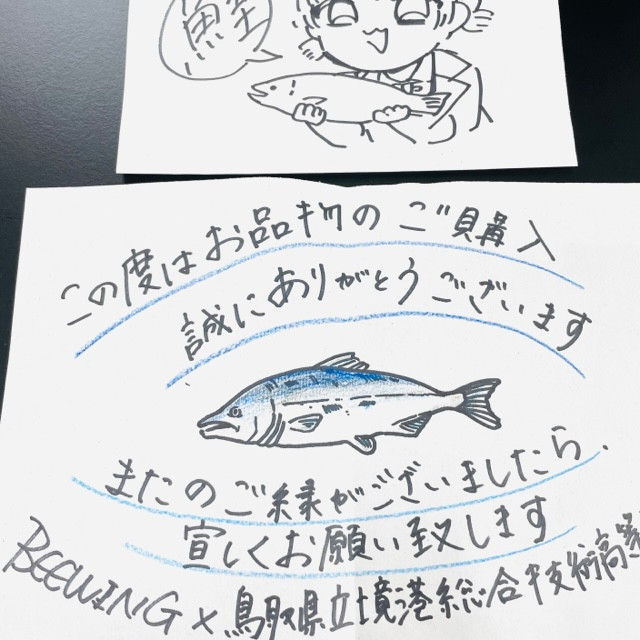 鮭
この度はお品物のご購入
誠にありがとうございます
またのご縁がございましたら、
宜しくお願い致します
BEEWING × 鳥取県立境港総合技術高等